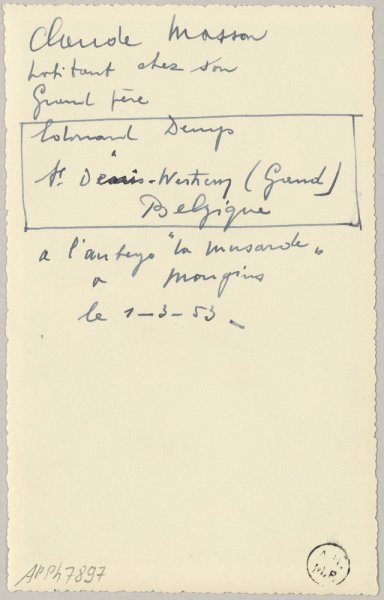 Claude Masson
habitant chez son
Grand père
Edouard Denys
St Denis-Westrem (Gand)
Belgique
a l'auberge "la musarde"
a Mougins
le 1-3-53
APPh7897